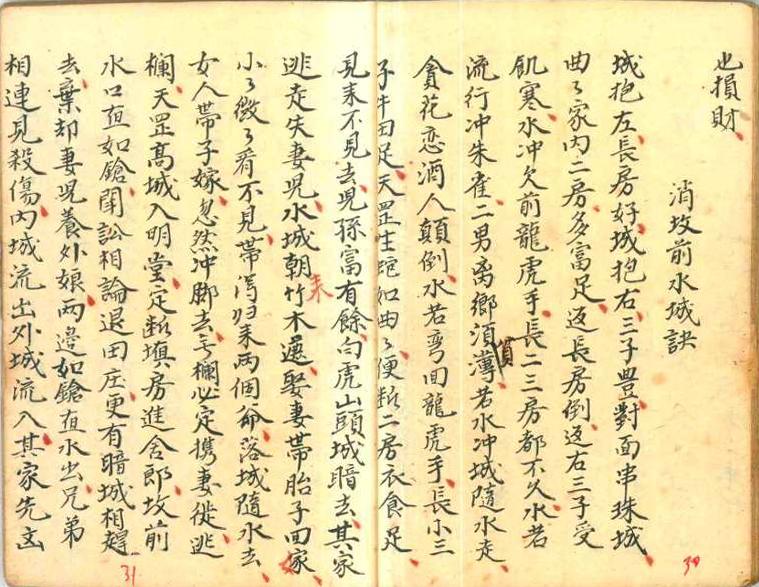 也損財
消坟前水城訣
城抱左長房好城抱右三子豊對面串珠城
曲々家内二房多富足返長房倒返右三子受
飢寒水冲欠前龍虎手長二三房都不久水若
流行冲朱雀二男离鄉須貧薄若水冲城隨水走
貪花恋酒人顛倒水若弯回龍虎手長小三
子牛田足天罡生蛇如曲々便断二房衣食足
見来不見去児孫富有餘白虎山頭城暗去其家
逃走失妻児水城朝竹木来還娶妻帯胎子回家
小々微々看不見帯得归来两個爺落城隨水去
女人帯子嫁忽然冲脚去無欄必定携妻徙逃
欄天罡高城入明堂定断填房進舍郎坟前
水口直如鎗閗訟相論退田庄更有暗城相趕
去棄却妻児養外娘两邉如鎗直水出兄弟
相連見殺傷内城流出外城流入其家先
31
30